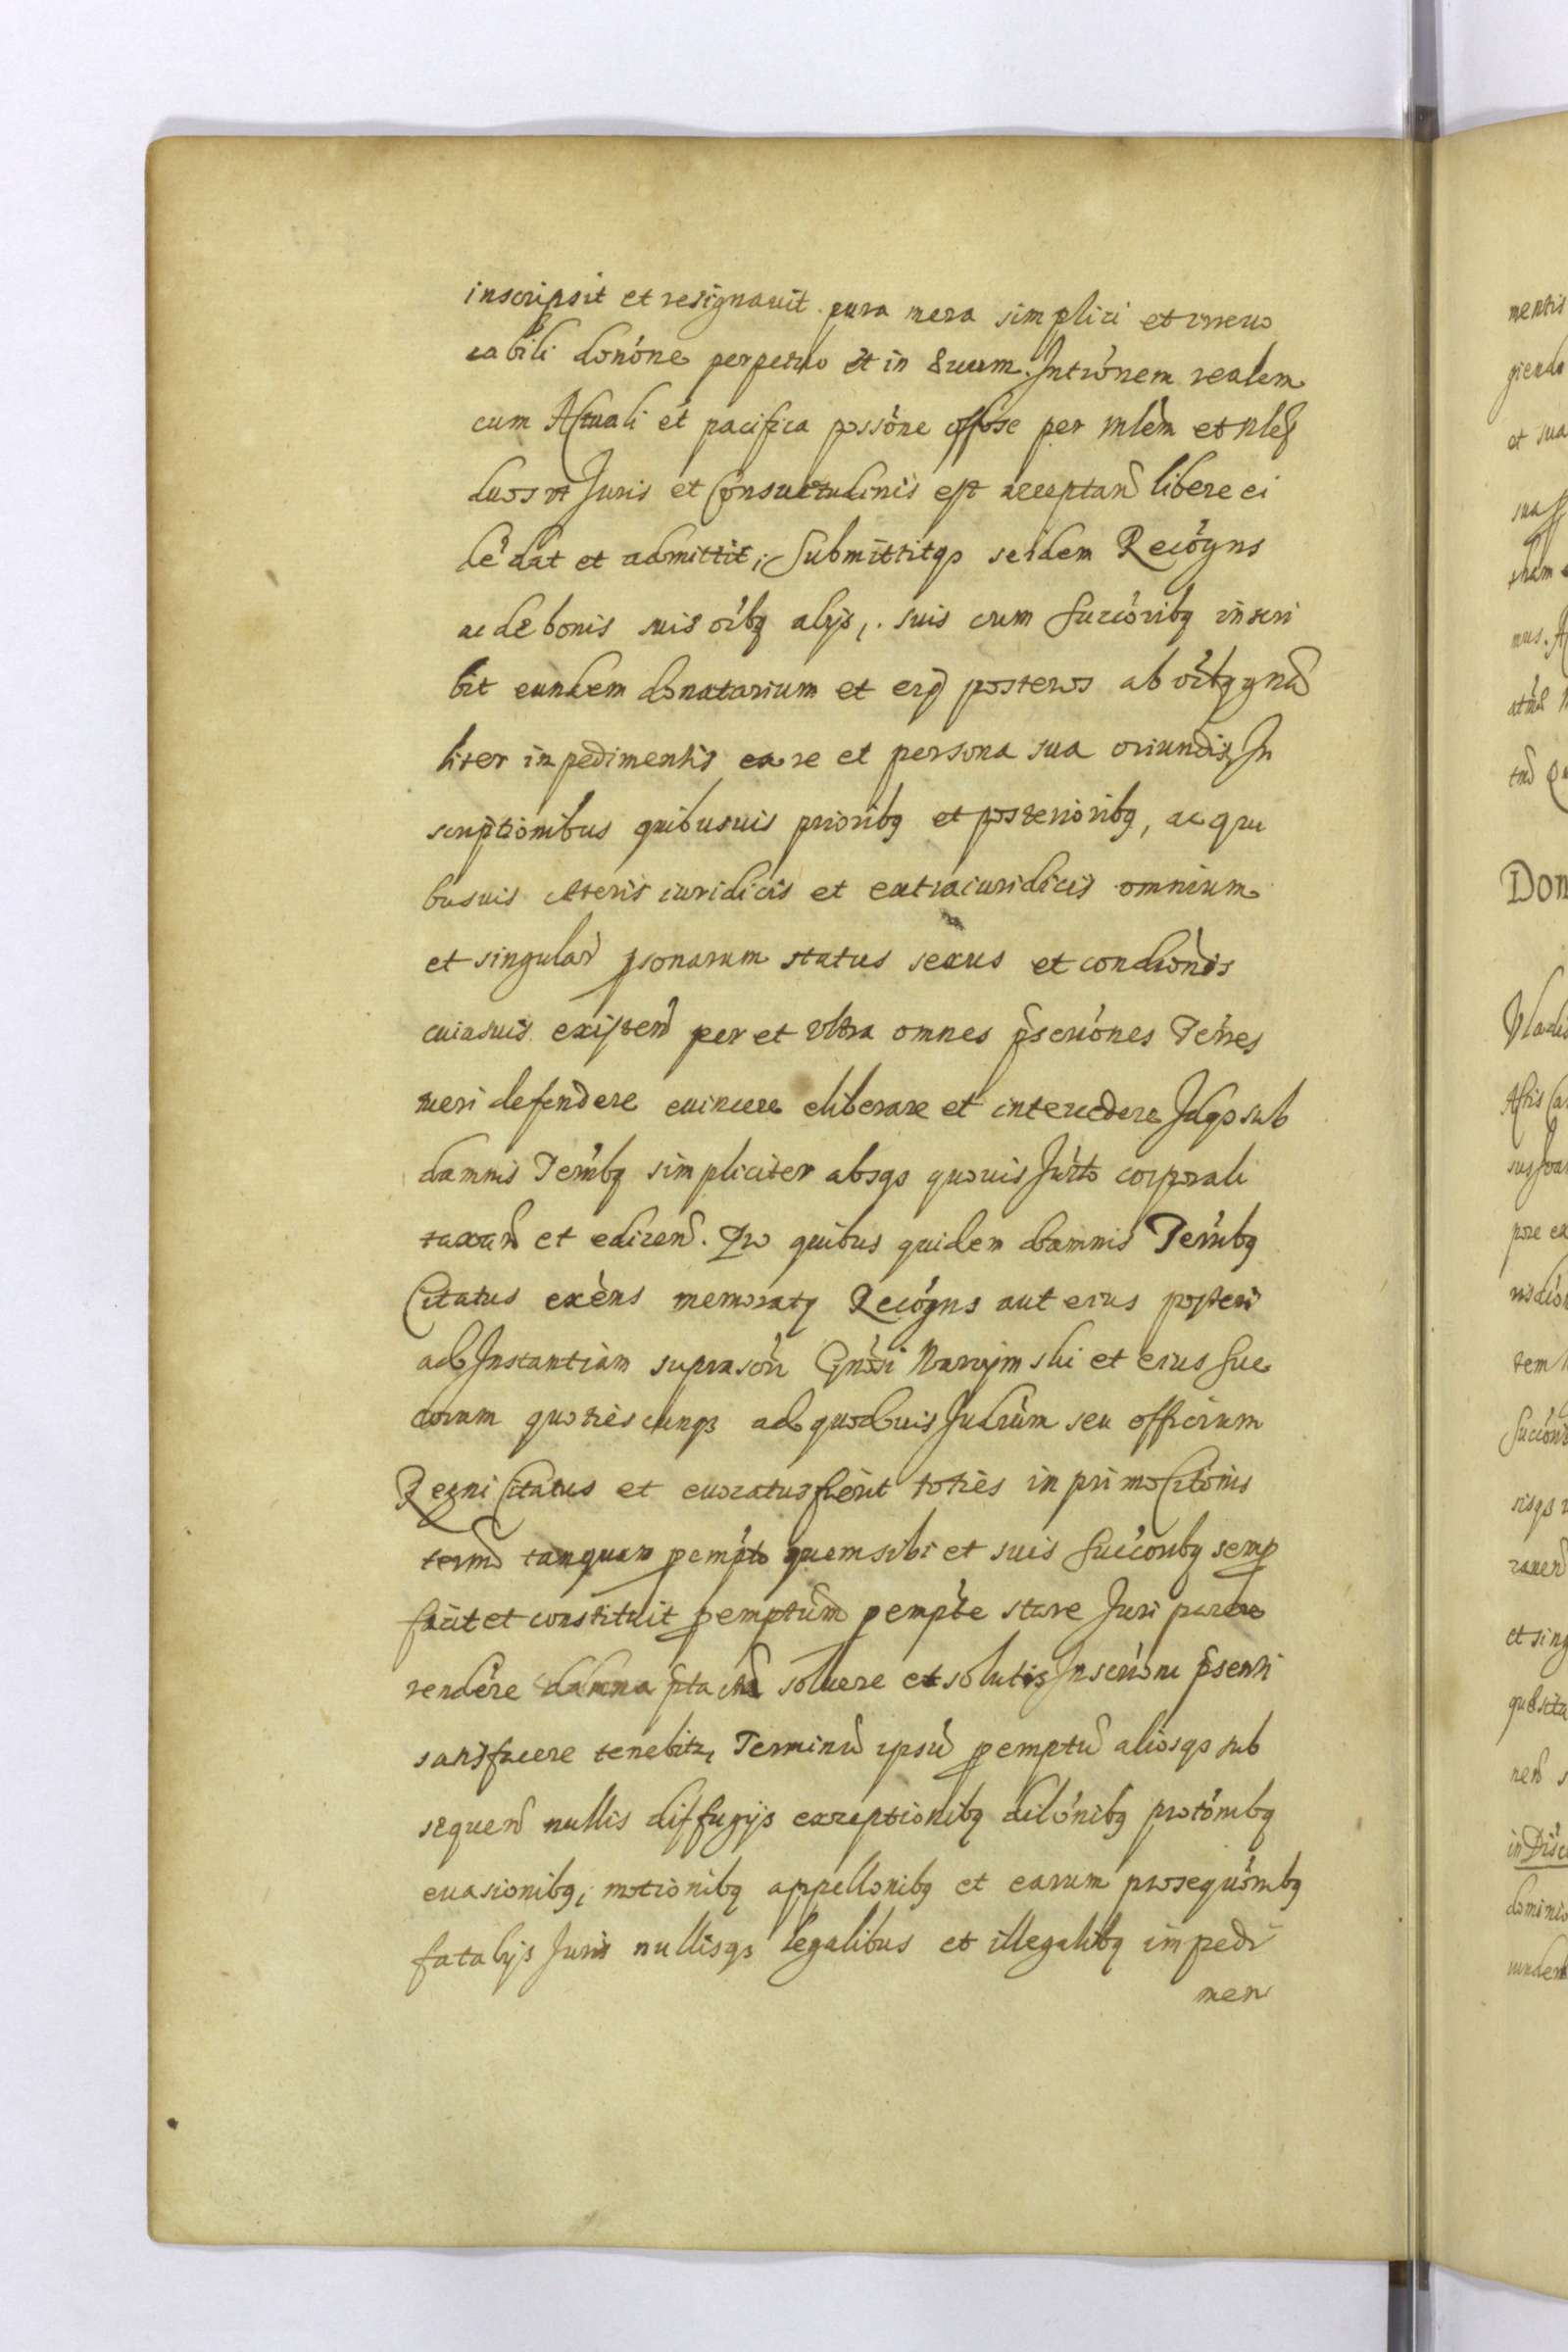 inscripsit et resignauit pura mera simplici et irreuo
cabili donóne perpetuo et in euum. Intrónem realem
cum Actuali et pacifica possóne offóse per mlém et nles
duos ut Juris et Consuetudinis est acceptand libere ei
dé dat et admittit, Submittitqз seidem Recógns
ac de bonis suis oíbq alijs, suis cum Succóribq inscri
bit eundem donatarium et eiq posteros ab oíbq gnã
liter impedimentis ea re et persona sua oriundis, In
scriptionibus quibusuis prioribq et posterioribq, ac qui
busuis cæteris iuridicis et extraiuridicis omnium
et singular psonarum status sexus et condiónis
cuiusuis existen per et ultra omnes pscriónes Térres
tueri defendere euincere eliberare et intercedere Idqз sub
damnis Térribq simpliciter absqз quouis Jurto corporali
taxand et edicend. Pro quibus quidem damnis Térribq
Citatus exèns memoratq Recógns aut eius posteri
ad Instantiam suprascri Gnósi Narzymski et eius Suc
corum quotiescunqз ad quoduis Judium seu officium
Regni Citatus et euocatus fíerit totiès in primo Citónis
termõ tanquam pempto quem sibi et suis Succóribq semp
facit et constituit pemptum pempte stare Juri parere
rendére damna pta solvere et solutis Inscrióni psenti
satisfacere tenebitr, Terminũ ipsũ pemptũ aliosqз sub
sequen nullis diffugijs exceptionibq dilónibq protónibq
euasionibq, motionibq appellonibq et earum prosequónibq
fatalijs Juris nullisqз legalibus et illegalibq impedi
men

mentis
giendo
et sua
sua
mus. A
Don
Vladis
Actis Ca
pore ex
tem
Succó
sisqз
et sing
quæsita
dominio